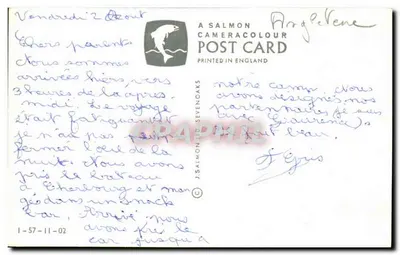 Vendredi 2 Aout
Chers parents
Nous sommes
arrivés hier, vers
3 heures de la après
midi. Le voyage
était fatiguant
je n'ai pas
fermer l'oeil de la
nuit. Nous avons
pris le bateau
à Cherbourg et man
gé dans un snack
bar. Arrivé nous
avons pris le
car jusqu'à
1-57-11-02
A SALMON
CAMERACOLOUR
POST CARD
PRINTED IN ENGLAND
© J. SALMON LTD. SEVENOAKS
Angleterre
notre camp. Nous
avons désigné nos
partenaires je suis
avec Laurence).
fait beau.